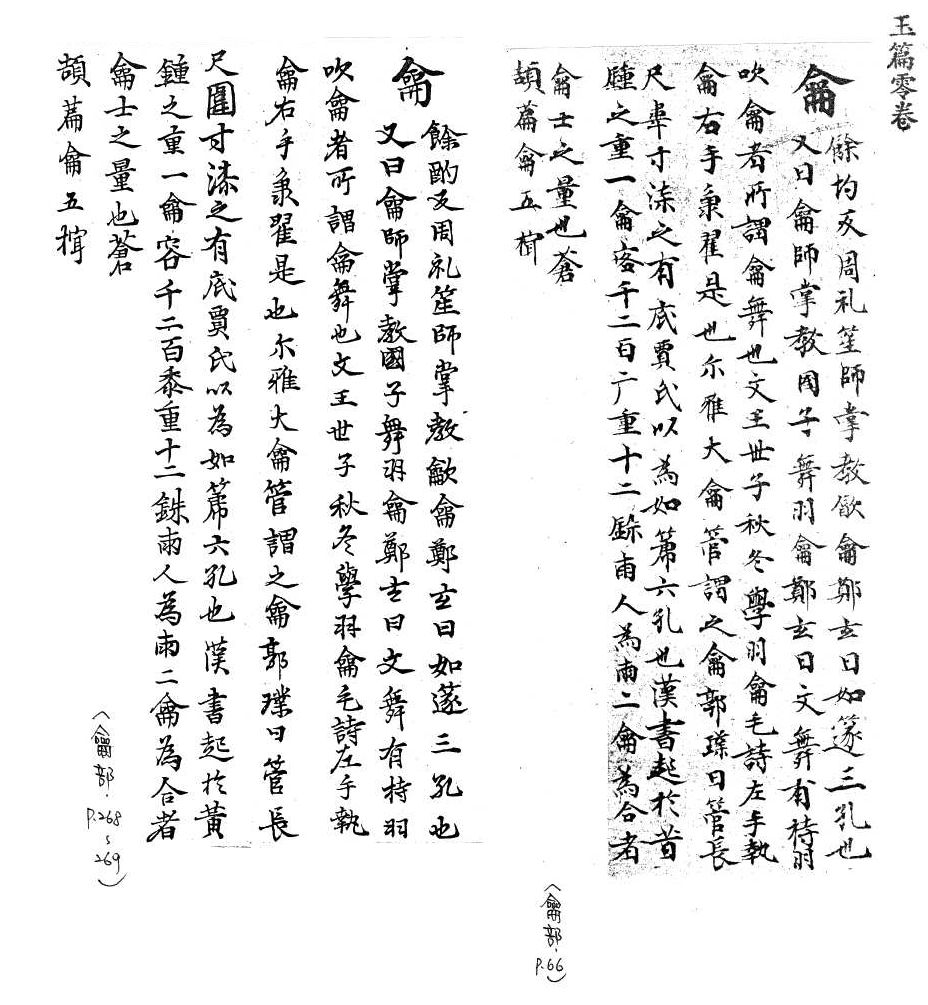 玉篇零卷
龠
餘均反周礼笙師掌教龡龠鄭玄曰如篴三孔也
又曰龠師掌教国子舞羽龠鄭玄曰文舞有持羽
吹龠者所謂龠舞也文王世子秋冬學羽龠毛詩左手執
龠右手秉翟是也尔雅大龠管謂之龠郭璞曰管長
尺寸漆之有底賈氏以為如篪六孔也漢書起於
之重一龠容千二百广重十二銖兩人為兩二龠為合者
龠士之量也蒼
頡篇龠五
〈龠部．P.66〉
龠
餘酌反周礼笙師掌教龡龠鄭玄曰如篴三孔也
又曰龠師掌教國子舞羽龠鄭玄曰文舞有持羽
吹龠者所謂龠舞也文王世子秋冬學羽龠毛詩左手執
龠右手秉翟是也尔雅大龠管謂之龠郭璞曰管長
尺圍寸漆之有底賈氏以為如篪六孔也漢書起於黃
鍾之重一龠容千二百黍重十二銖兩人為兩二龠為合者
龠士之量也蒼
頡篇龠五
〈龠部．P.268~269〉